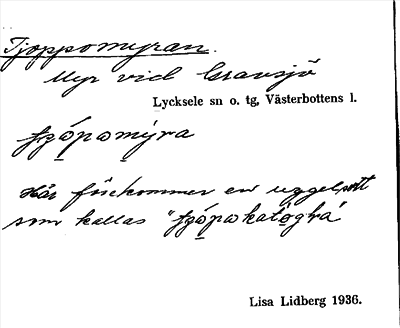 Tjoppomyran.
Myr vid Gravsjö
Lycksele sn o. tg, Västerbottens l.
Här förekommer en uggelsort
som kallas
Lisa Lidberg 1936.